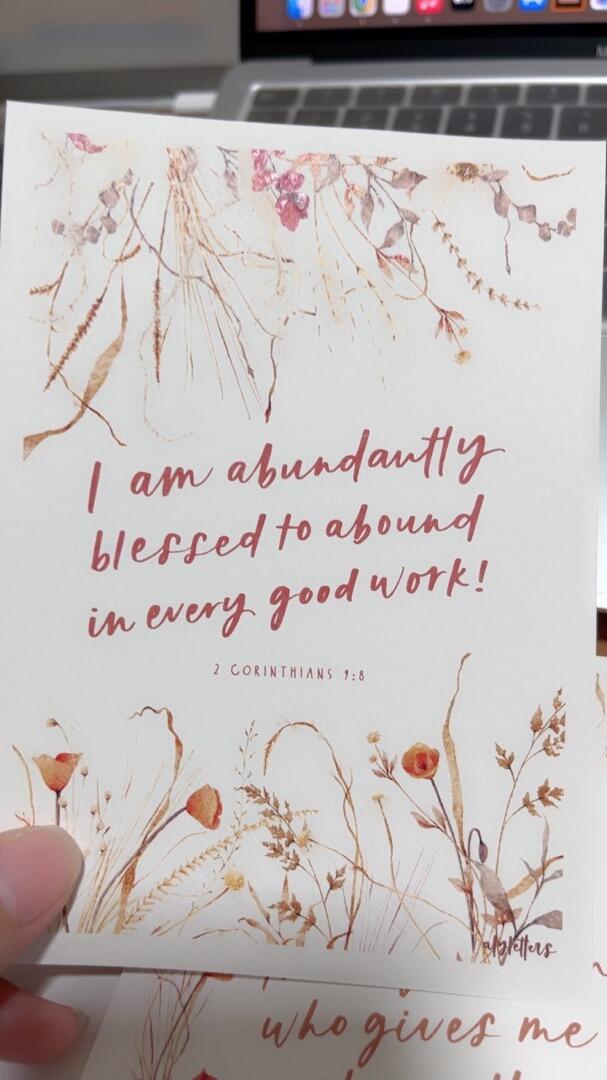 I am abundantly
blessed to abound
in every good work!
2 CORINTHIANS 9:8
albletters
who gives me